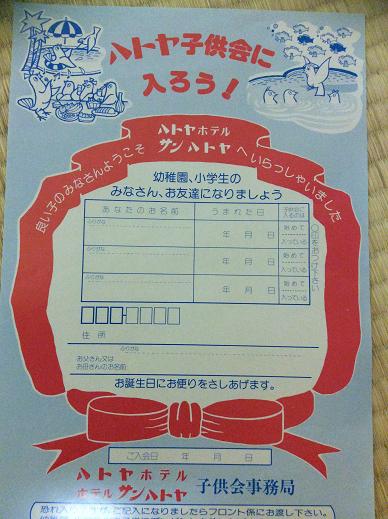 ハトヤ子供会に
入ろう！
良い子のみなさんようこそ
ハトヤホテル
サンハトヤ
へいらっしゃいました
幼稚園、小学生の
みなさん、お友達になりましょう
あなたのお名前 うまれた日 子供会に入るのは
ふりがな
年 月 日 始めて
入っている
ふりがな
年 月 日 始めて
入っている
ふりがな
年 月 日 始めて
入っている
○印をおつけ下さい
住所
ふりがな
お父さん又は
お母さんのお名前
お誕生日にお便りをさしあげます。
ご入会日 年 月 日
ハトヤホテル
ホテルサンハトヤ 子供会事務局
恐れ入りますが、ご記入になりましたらフロント係にお渡し下さい。